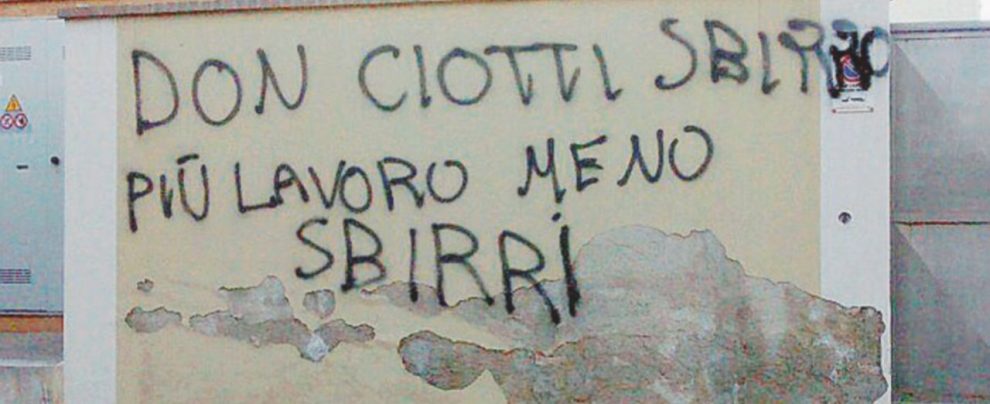 DON CIOTTI SBIRRO
PIÙ LAVORO MENO
SBIRRI